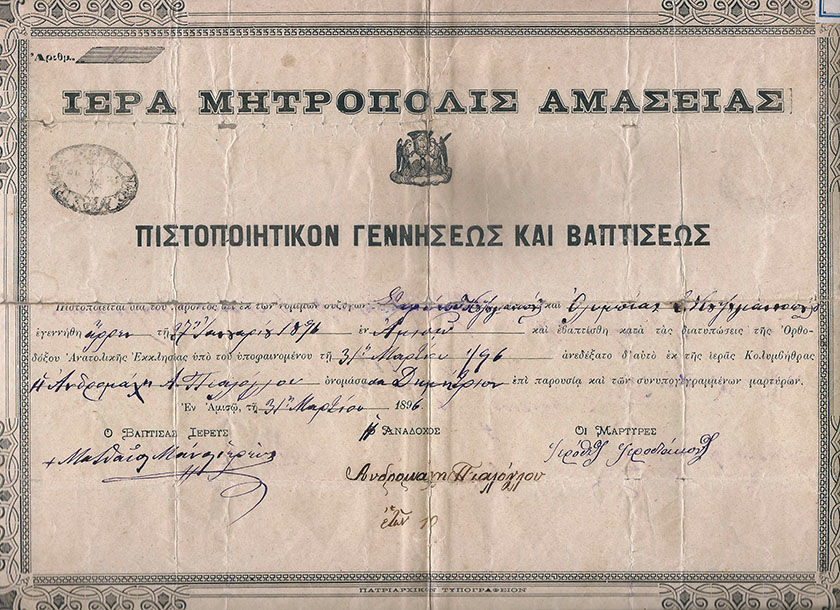 Ἀριθμ.
ΙΕΡΑ ΜΗΤΡΟΠΟΛΙΣ ΑΜΑΣΕΙΑΣ
ΠΙΣΤΟΠΟΙΗΤΙΚΟΝ ΓΕΝΝΗΣΕΩΣ ΚΑΙ ΒΑΠΤΙΣΕΩΣ
Πιστοποιεῖται διὰ τοῦ παρόντος ὅτι ἐκ τῶν νομίμων συζύγων καὶ Ὀλυμπίας
ἐγεννήθη ἄρρεν τῇ 27ῃ Ἰανουαρίου 1896 ἐν Ἀμισῷ καὶ ἐβαπτίσθη κατὰ τὰς διατυπώσεις τῆς Ὀρθο-
δόξου Ἀνατολικῆς Ἐκκλησίας ὑπὸ τοῦ ὑποφαινομένου τῇ 31ῃ Μαρτίου 1896 ἀνεδέξατο δ'αὐτὸ ἐκ τῆς ἱερᾶς Κολυμβήθρας
ἡ Ἀνδρομάχη Α. Πιαλόγλου ὀνομάσασα Δημήτριον ἐπὶ παρουσίᾳ καὶ τῶν συνυπογεγραμμένων μαρτύρων.
Ἐν Ἀμισῷ, τῇ 31ῃ Μαρτίου 1896
Ο ΒΑΠΤΙΣΑΣ ΙΕΡΕΥΣ Η ΑΝΑΔΟΧΟΣ ΟΙ ΜΑΡΤΥΡΕΣ
Ανδρομαχη Πιαλόγλου
ἐτῶν 10
ΠΑΤΡΙΑΡΧΙΚΟΝ ΤΥΠΟΓΡΑΦΕΙΟΝ